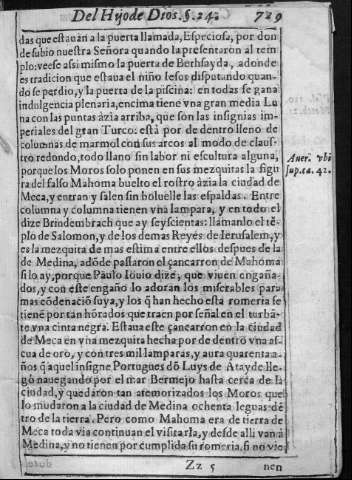 Del Hijo de Dios. §. 24. 729
das que estauan a la puerta llamada, Especiosa, por don
de subio nuestra Señora quando la presentaron al tem
plo: veese assi mismo la puerta de Bethsayda, adonde
es tradicion que estaua el niño Iesus disputando quan-
do se perdio, y la puerta de la piscina: en todas se gana
indulgencia plenaria, encima tiene vna gran media Lu
na con las puntas àzia arriba, que son las insignias im-
periales del gran Turco: està por de dentro lleno de
columnas de marmol con sus arcos al modo de claus-
tro redondo, todo llano sin labor ni escultura alguna,
porque los Moros solo ponen en sus mezquitas la figu
ra del falso Mahoma buelto el rostro àzia la ciudad de
Meca, y entran y salen sin boluelle las espaldas. Entre
columna y columna tienen vna lampara, y en todo el
dize Brindembrach que ay seyscientas: llamanlo el tẽ-
plo de Salomon, y de los demas Reyes de Ierusalem, y
es la mezquita de mas estima entre ellos despues de la
de Medina, adõde passaron el çancarron de Mahoma
si lo ay, porque Paulo Iouio dize, que viuen engaña-
dos, y con este engaño lo adoran los miserables para
mas cõdenaciõ suya, y los q̃ han hecho esta romeria se
tienẽ por tan hõrados que traen por señal en el turbã-
te vna cinta negra. Estaua este çancarron en la ciudad
de Meca en vna mezquita hecha por de dentro vna as-
cua de oro, y con tres mil lamparas, y aura quarenta a-
ños q̃ aquel insigne Portugues dõ Luys de Atayde lle-
gò nauegando por el mar Bermejo hasta cerca de la
ciudad, y quedaron tan atemorizados los Moros que
lo mudaron a la ciudad de Medina ochenta leguas dẽ-
tro de la tierra. Pero como Mahoma era de tierra de
Meca toda via continuan el visitarla, y desde alli van a
Medina, y no tienen por cumplida su romeria, si no vie
Zz 5 nen
Auer. vbi
sup. ca. 42.